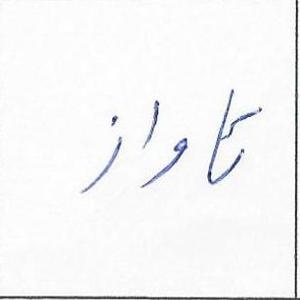 تاواز